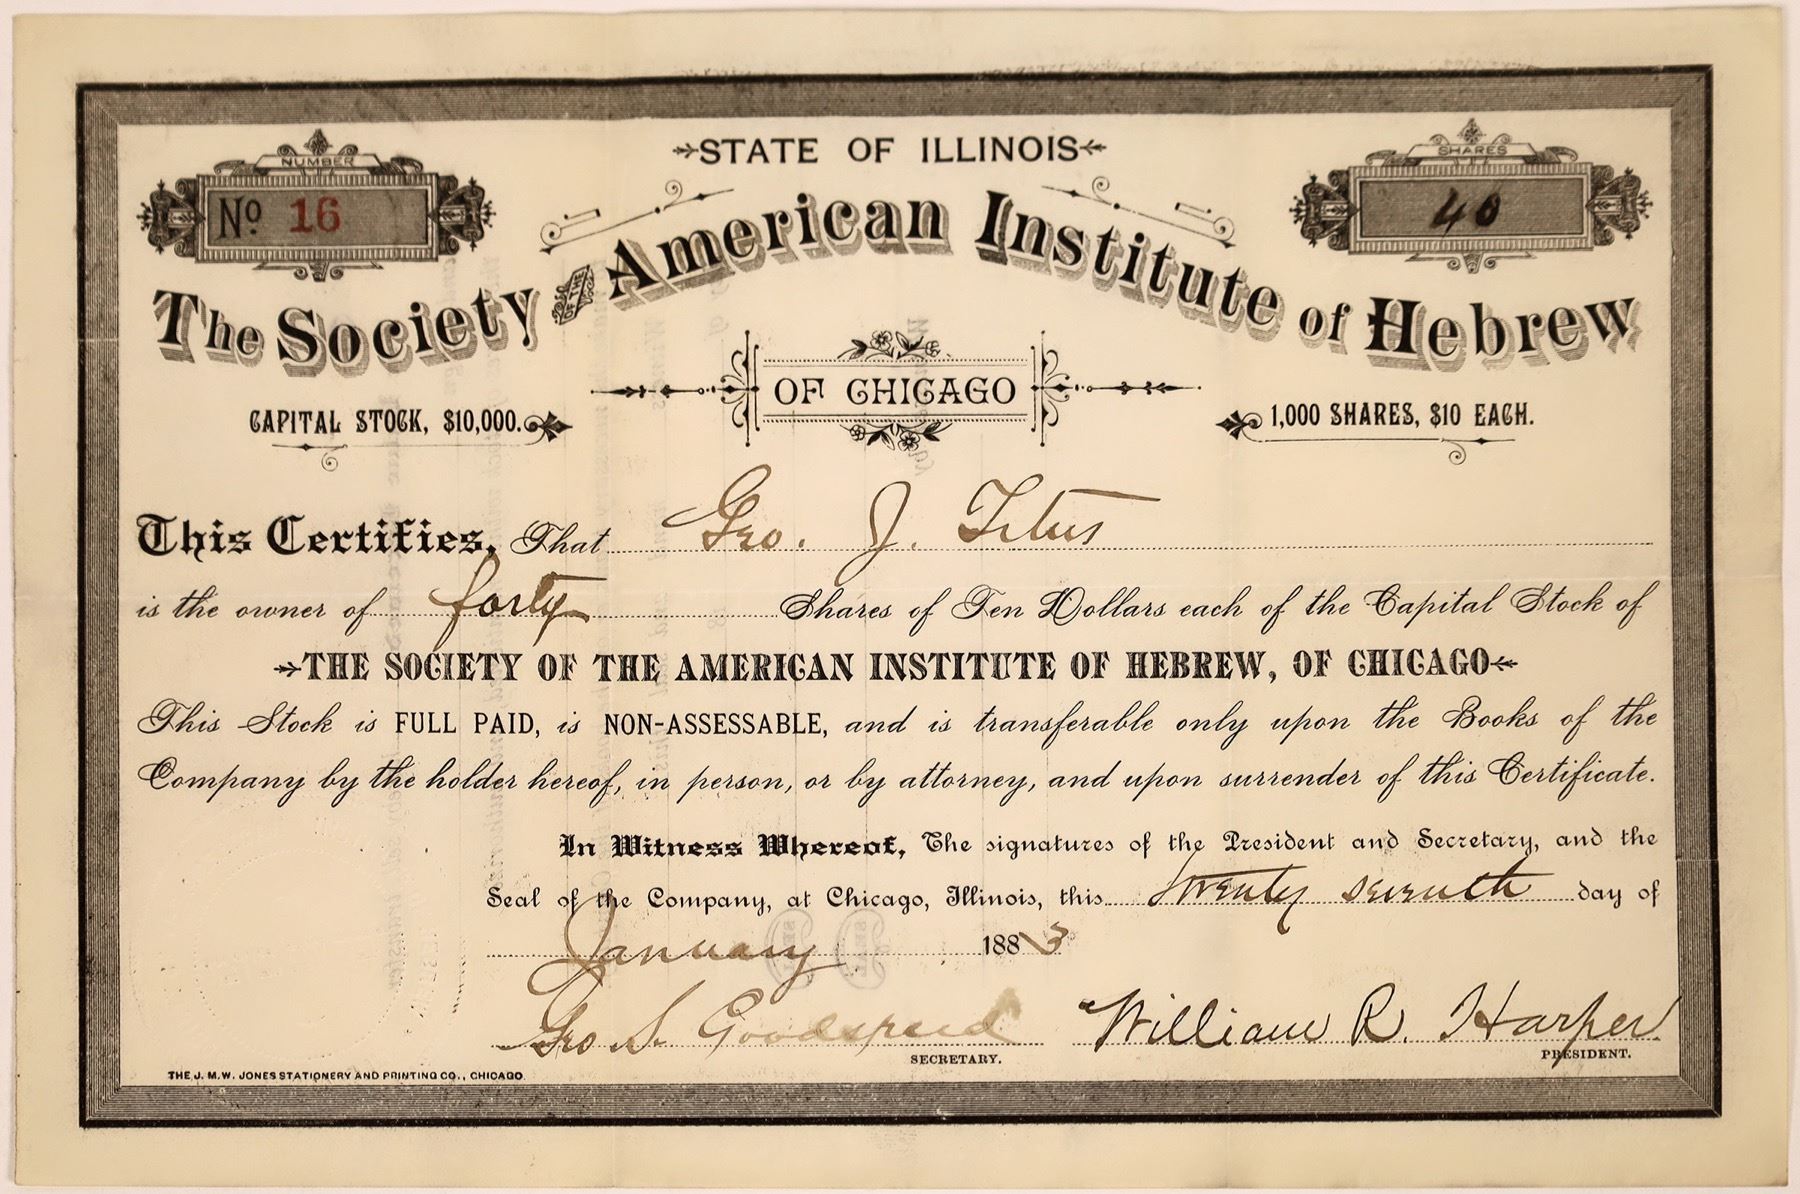 STATE OF ILLINOIS
NUMBER
No 16
SHARES
40
The Society OF THE American Institute of Hebrew
OF CHICAGO
CAPITAL STOCK, $10,000.
1,000 SHARES, $10 EACH.
This Certifies, That Geo. J. Titus
is the owner of forty Shares of Ten Dollars each of the Capital Stock of
THE SOCIETY OF THE AMERICAN INSTITUTE OF HEBREW, OF CHICAGO
This Stock is FULL PAID, is NON-ASSESSABLE, and is transferable only upon the Books of the
Company by the holder hereof, in person, or by attorney, and upon surrender of this Certificate.
In Witness Whereof, The signatures of the President and Secretary, and the
Seal of the Company, at Chicago, Illinois, this twenty seventh day of
January 1883
Geo S. Goodspeed
SECRETARY.
William R. Harper
PRESIDENT.
THE J. M. W. JONES STATIONERY AND PRINTING CO., CHICAGO